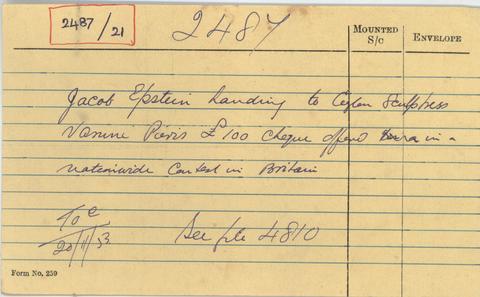 2487/21
2487
MOUNTED S/C
ENVELOPE
Jacob Epstein handing to Ceylon Sculptress
Pieris £100 cheque offered in a
nationwide Contest in Britain
20/11/53
See file 4810
Form No. 259